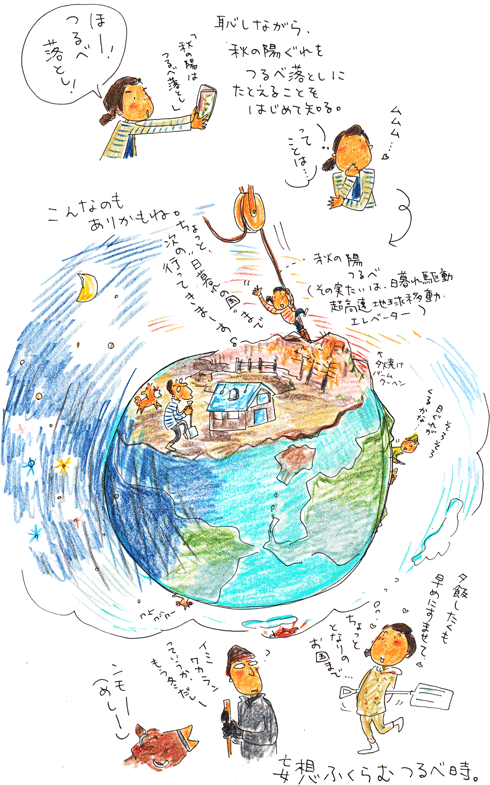 ほー!
つるべ
落とし!
「秋の陽は
つるべ落とし」
恥しながら、
秋の陽ぐれを
つるべ落としに
たとえることを
はじめて知る。
ムムム…
って
ことは…
こんなのも
ありかもね。
ちょっと、
次の"日暮の国"まで
行ってきまーする
秋の陽
つるべ
(その実たいは、日暮れ駆動
超高速地球移動
エレベーター)
夕焼け
バーム
クーヘン
そろそろ
日ぐれが
くるかな…
夕飯したくも
早めにすませて、
ちょっと
となりの
お国まで…
イミ
ワカラン
っていうか
もう夕だし
ンモー
(めしー)
妄想ふくらむつるべ時。